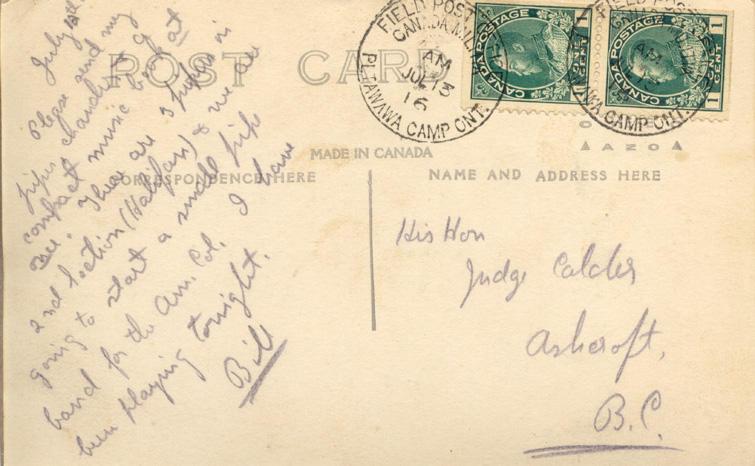 POST CARD
MADE IN CANADA
CORRESPONDENCE HERE
NAME AND ADDRESS HERE
July
Please send my
pipes chanter &
compact music book at
once. There are 3 pipers in
2nd Section (Halifax) & we are
going to start a small pipe
band for the Am. Col. I have
been playing tonight.
Bill
His Hon
Judge Calder
Ashcroft,
B.C.
FIELD POST
CANADA MILITIA
AM
JUL 13
16
PETAWAWA CAMP ONT.
CANADA POSTAGE
1 CENT 1
FIELD POST
AM
WA CAMP ONT.
CANADA POSTAGE
1 CENT 1
AZO